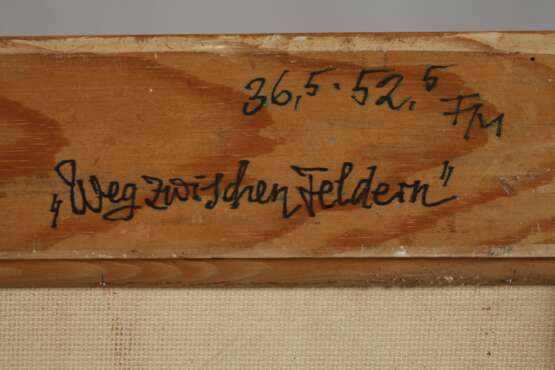 36,5 · 52,5 F/M
„Weg zwischen Feldern"